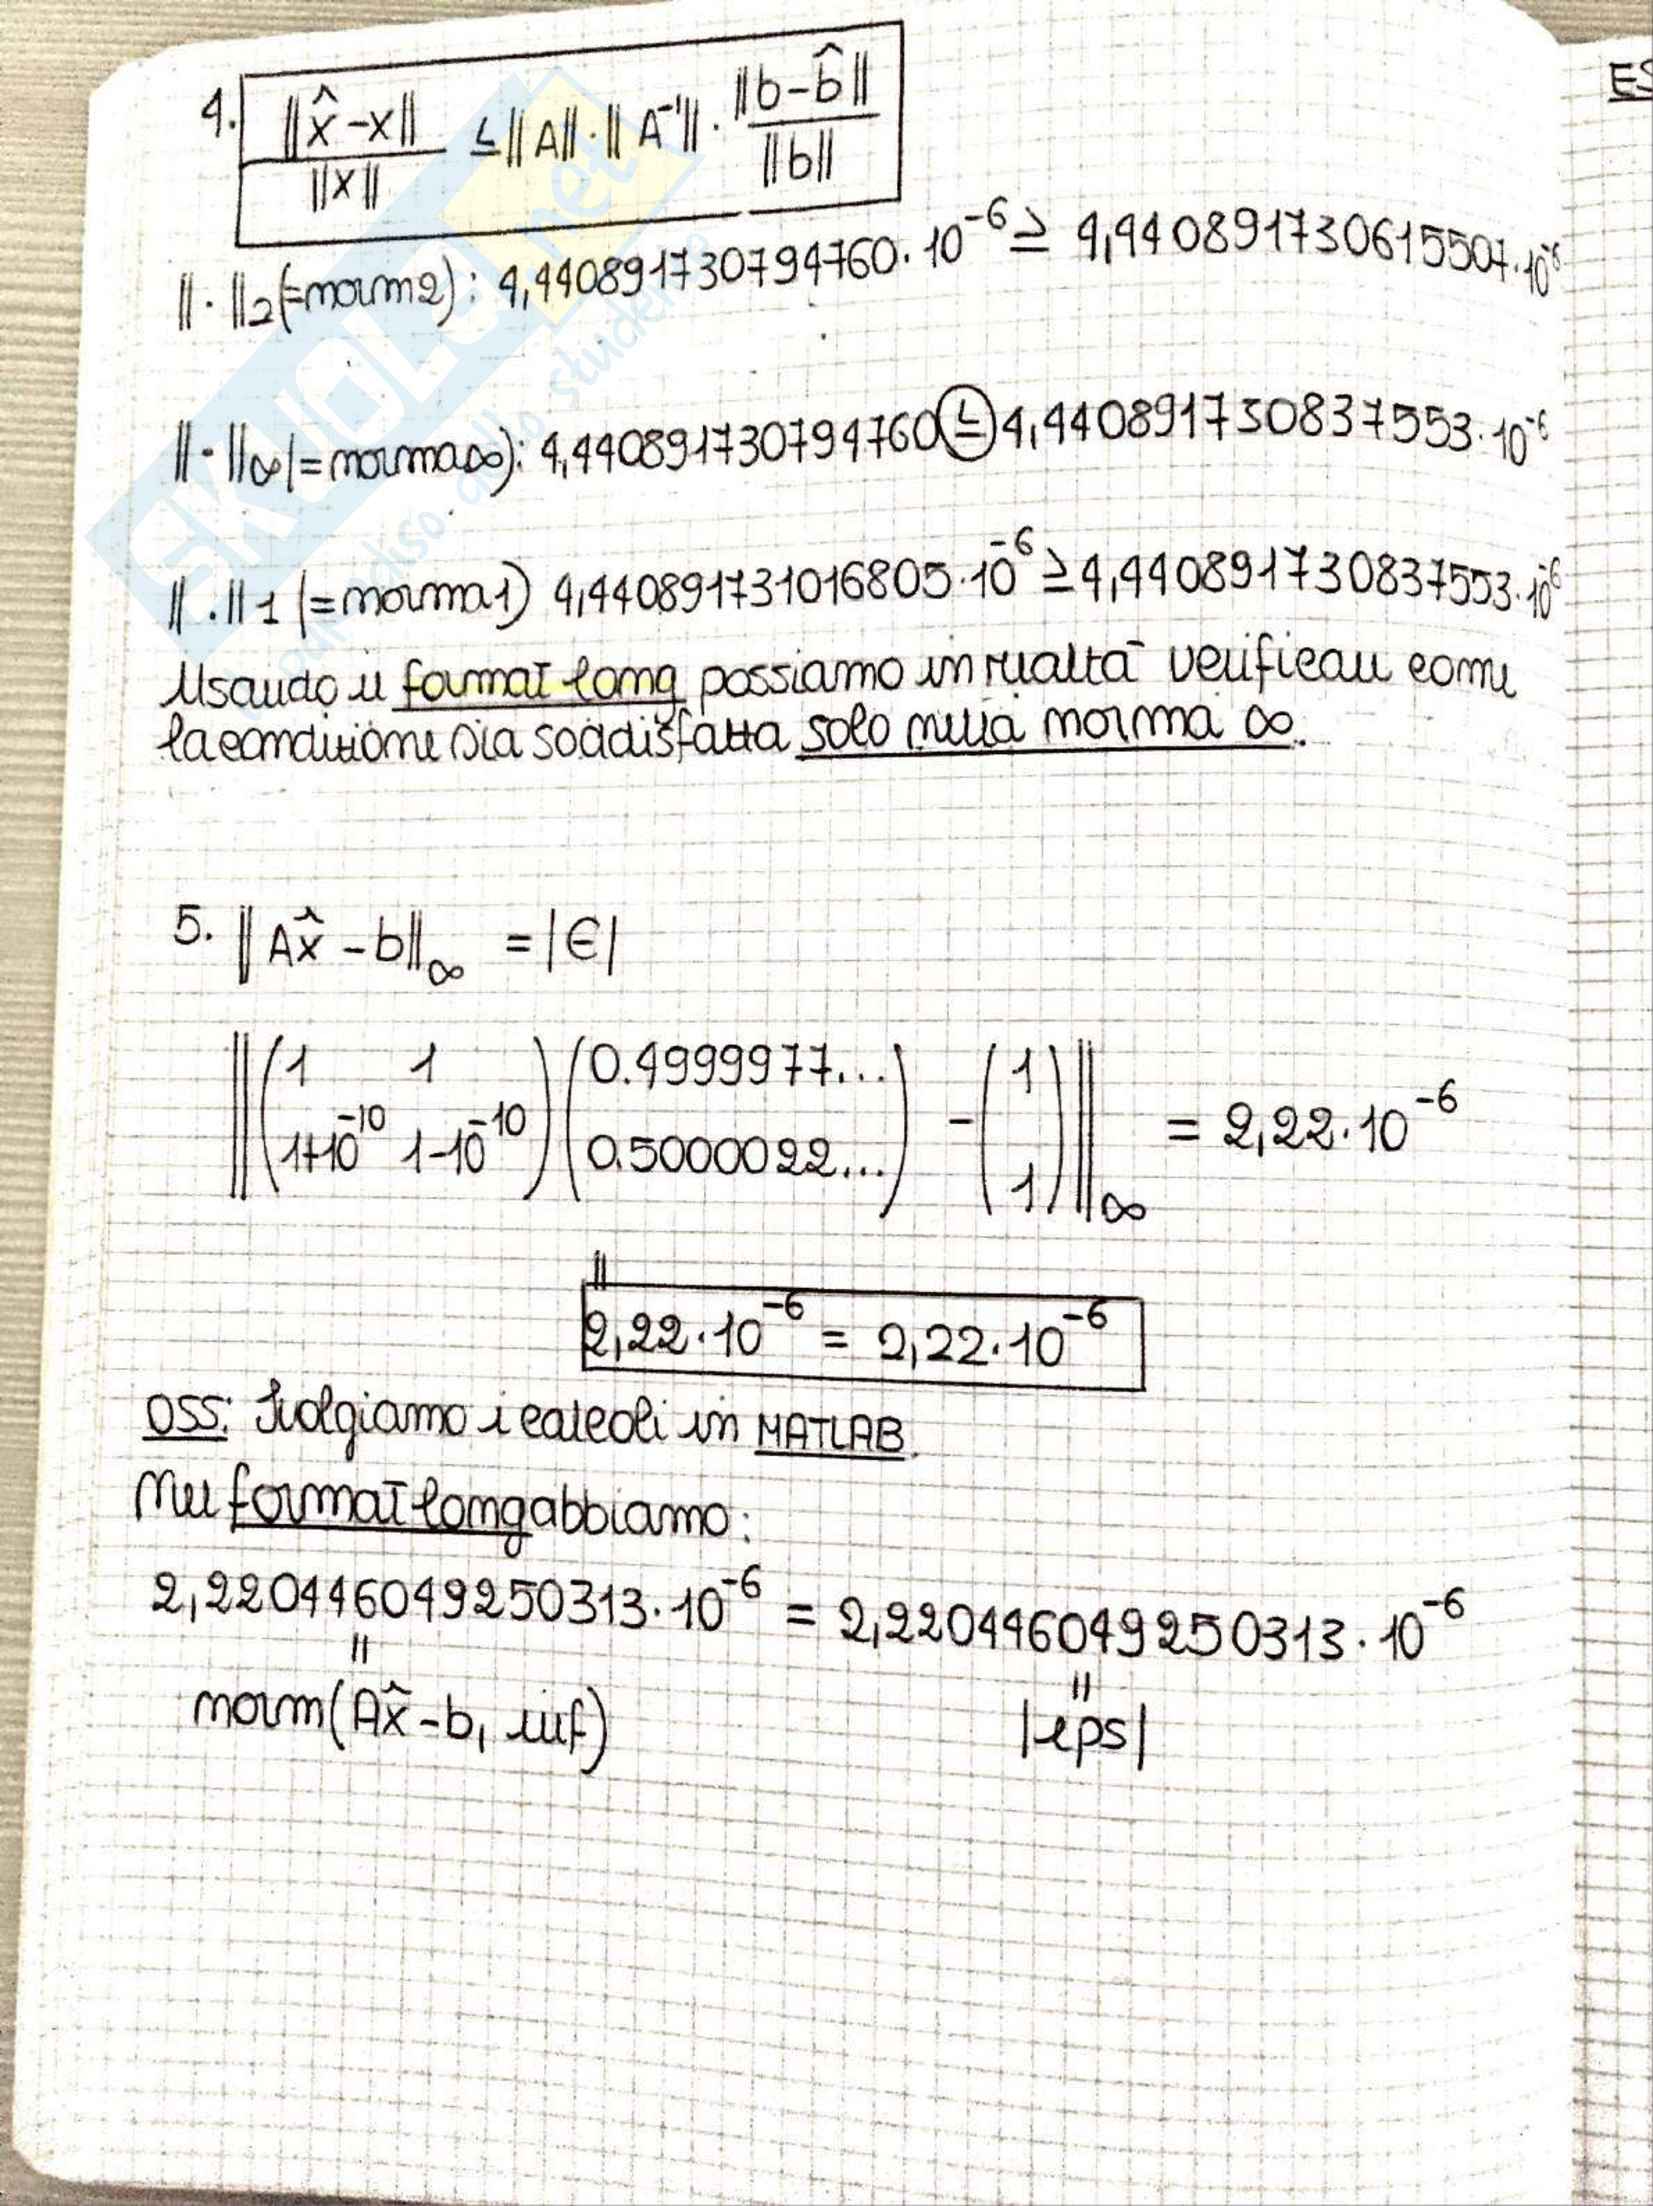 4. ||x̂-x|| / ||x|| ≤ ||A||·||A⁻¹||· ||b-b̂|| / ||b||
||·||₂(=norm2): 4,440891730794760·10⁻⁶ ≥ 4,440891730615507·10⁻⁶
||·||∞(=norma∞): 4,440891730794760 ≤ 4,440891730837553·10⁻⁶
||·||1 (=norma1) 4,440891731016805·10⁻⁶ ≥ 4,440891730837553·10⁻⁶
Usando il format long possiamo in realtà verificare come
la condizione sia soddisfatta solo nella norma ∞.
5. ||Ax̂-b||∞ = |ϵ|
||(1 1) (0.4999977...) - (1)||
(1+10⁻¹⁰ 1-10⁻¹⁰) (0.5000022...) (1) ∞ = 2,22·10⁻⁶
||
2,22·10⁻⁶ = 2,22·10⁻⁶
OSS: Svolgiamo i calcoli in MATLAB.
Nel format long abbiamo:
2,220446049250313·10⁻⁶ = 2,220446049250313·10⁻⁶
|| ||
norm(Ax̂-b, inf) |eps|
ES
SKUOLA.net
il paradiso dello studente